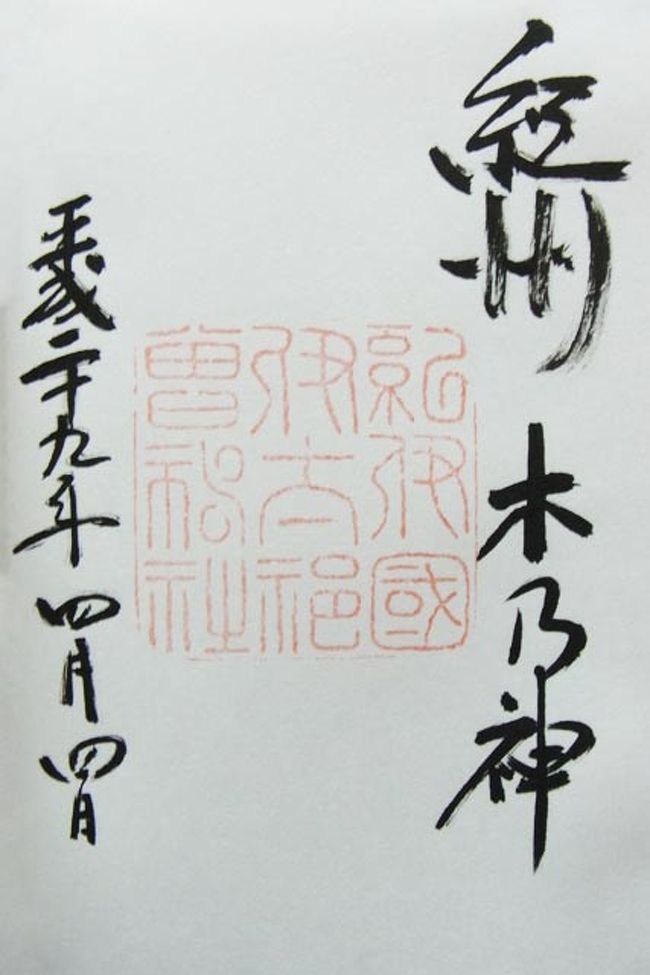 紀州 木乃神
紀伊國
伊太祁
曽神社
平成二十九年四月四日